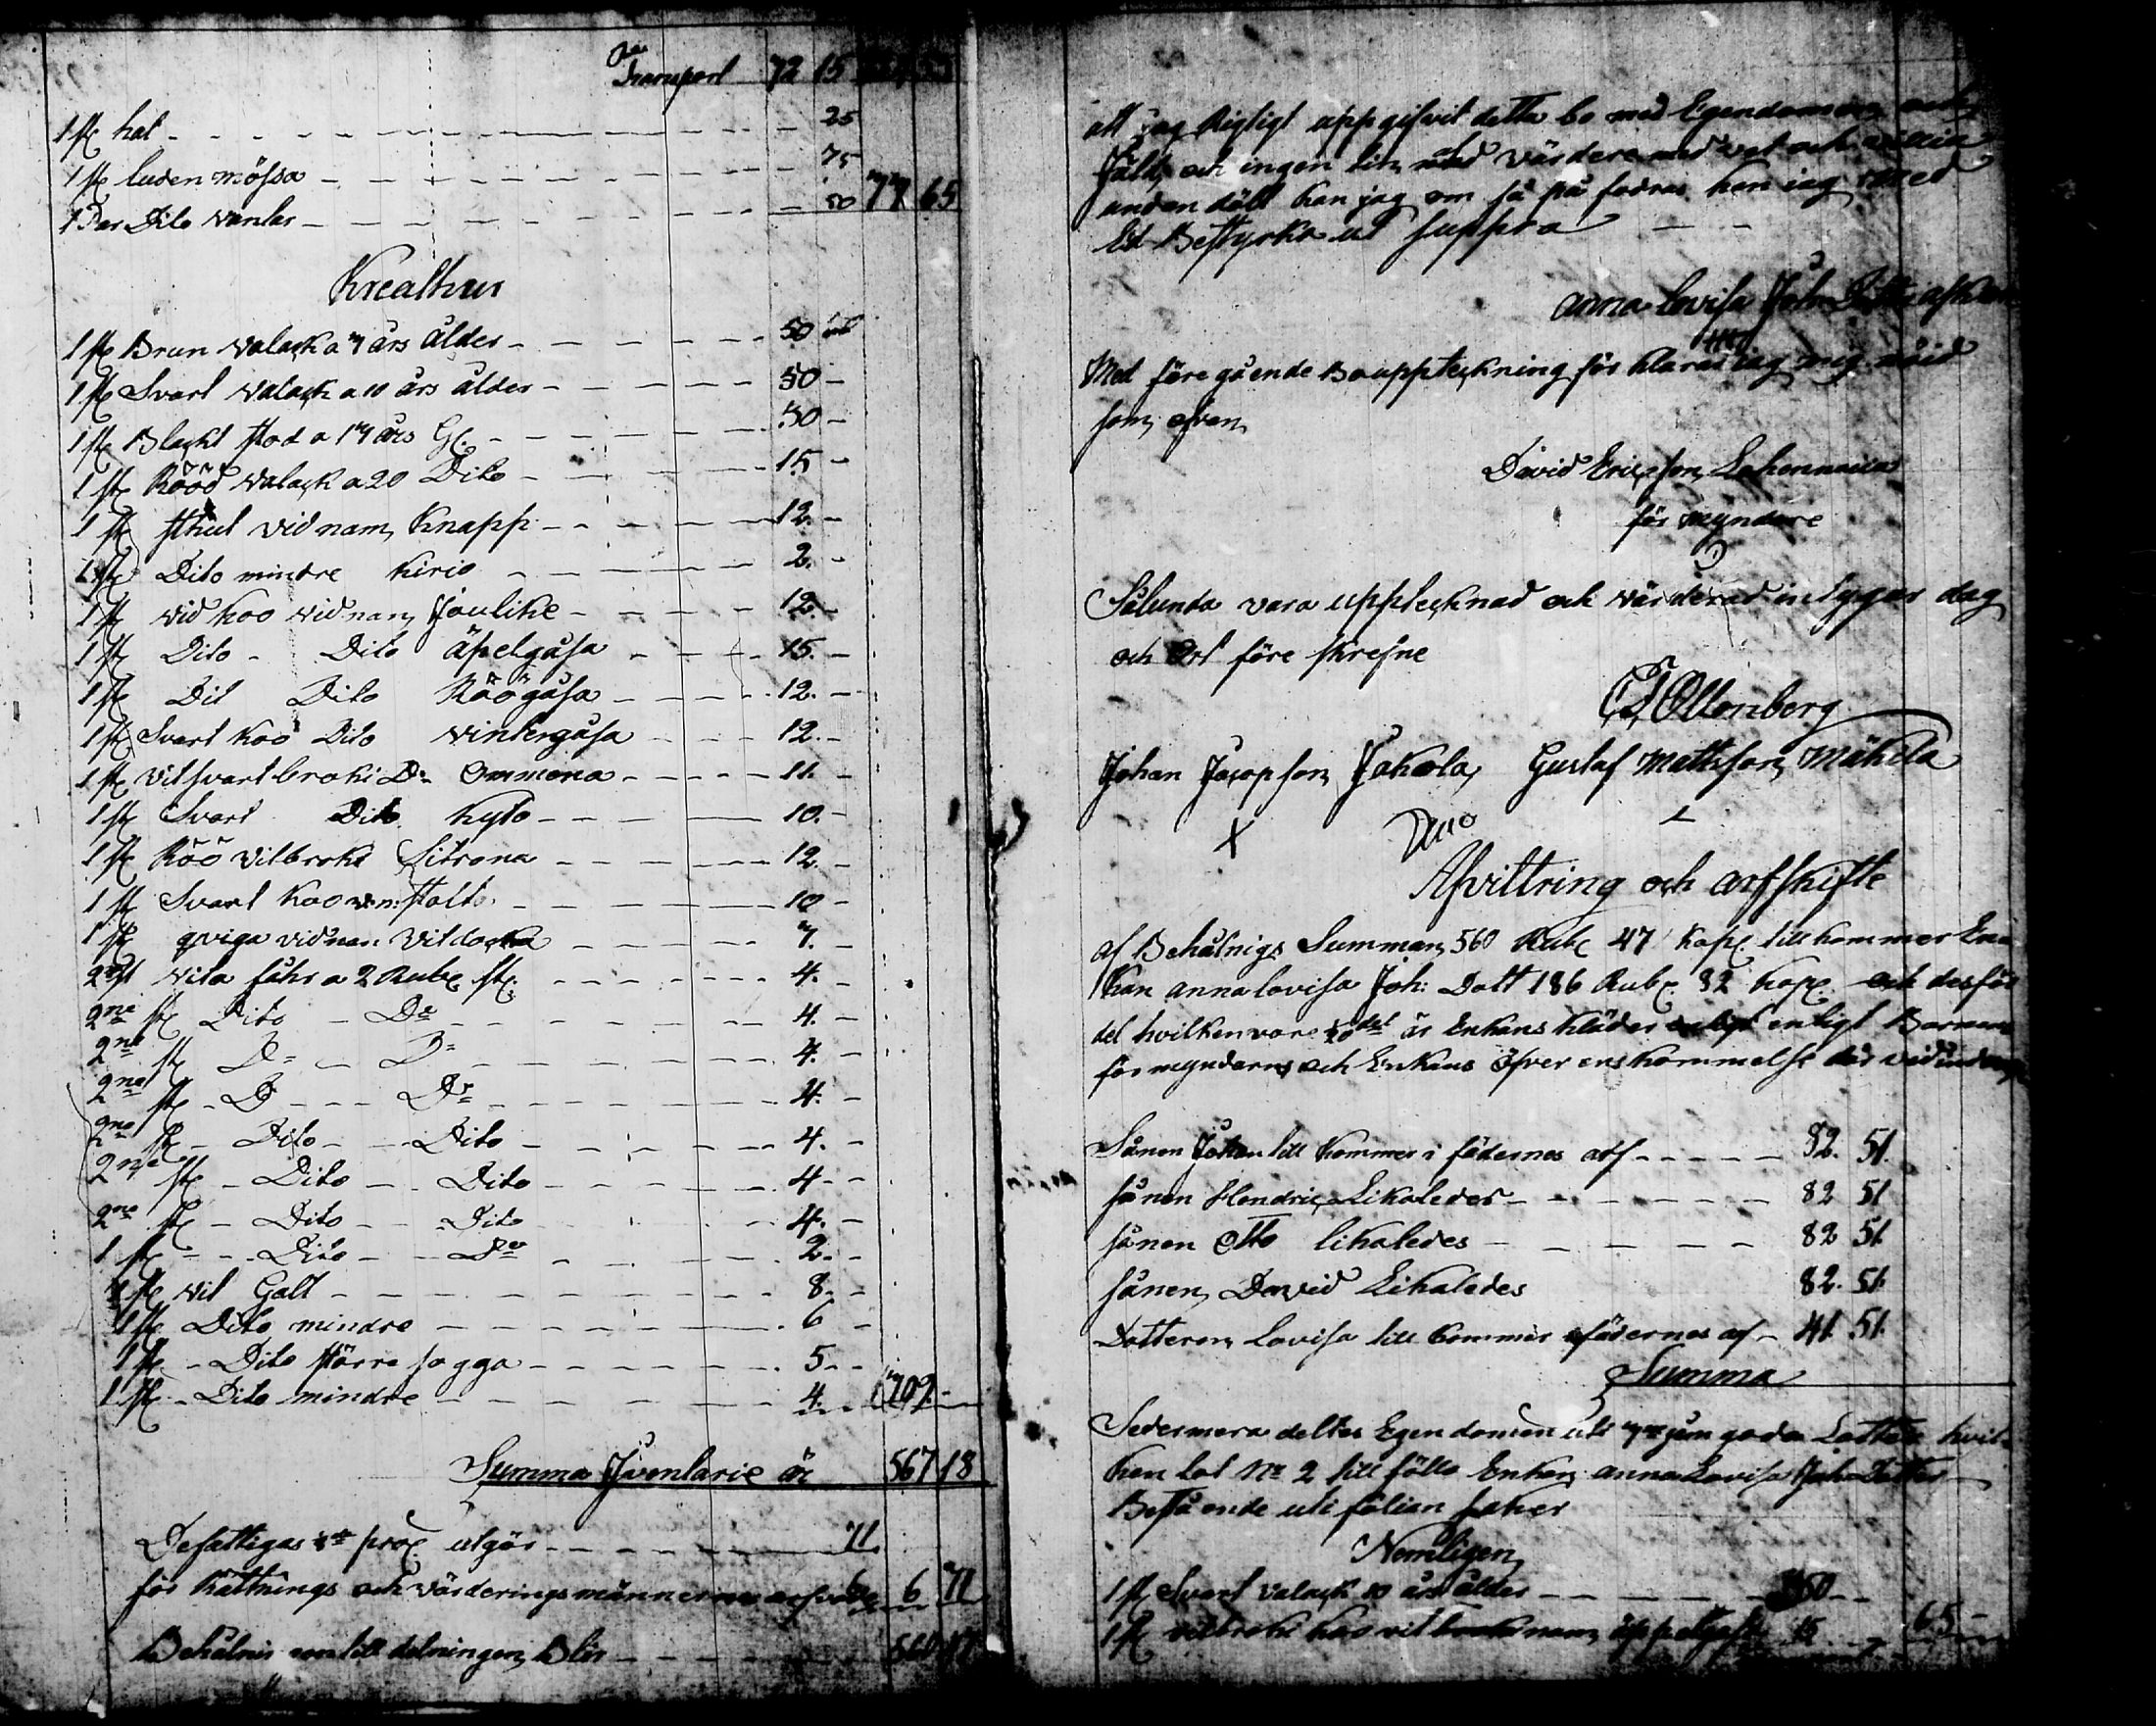 Transport 72 15
1 st hat - - - 25
1 st luden mössa - - - 75
1 Par Dito vantar - - - 50 77 65
Kreathur
1 st Brun valack a 7 års ålder - - - 50
1 st Svart valack a 10 års ålder - - - 50 -
1 st Blackt stod a 17 års - - - 50 -
1 st Rööd valack a 20 Dito - - - 15 -
1 st vid nam Knapp - - - 12. -
1 st Dito mindre Kirio - - - 2. -
1 st vid koo vid nam Joulike - - - 12 -
1 st Dito - Dito äpelgåsa - - - 15. -
1 st Dit Dito Röögåsa - - - 12. -
1 st Svart koo Dito Vintergåsa - - - 12. -
1 st vitsvartbroki Do Ommena - - - 11. -
1 st Svart Dito Kyto - - - 10. -
1 st Röö vitbroki Sitrona - - - 12. -
1 st Svart koo v: n: Stolto - - - 10 -
1 st qviga vid nam Vitdocka - - - 7. -
2 st vita fåhr a 2 Rub st. - - - 4. -
2ne st Dito - Do - - - 4. -
2ne st Do - Do - - - 4. -
2ne st - Do - - - Do - - - 4. -
2ne st - Dito - - Dito - - - 4. -
2ne st - Dito - - Dito - - - 4 - -
2ne st - Dito - - Dito - - - 4. -
1 st - - Dito - - Do - - - 2. -
1 st vit Galt - - - 8. -
1 st Dito mindre - - - 6 -
1 st - Dito större sogga - - - 5 - -
1 st - Dito mindre - - - 4. -
Summa Jventarie är 567 18
Defattigas proc. utgör - - - 71
för Rättnings och värderingsmännernes 6 71
Behålnis som till delningen Blir - - -
att jag Rigtigt uppgifvit detta bo med Egendom och
Jäld, och ingen ting med värdere med vet och vilia
undan dålt kan jag om så på fodras kan iag med
Ed Bestyrka ut suppra
anna Lovisa Joh
Med föregående Bouppteckning för klarar iag mig nöid
som ofvan
David Ericsson Lahonnaiia
för myndare
Sålunda vara upptecknad och värderad intygar dag
och Ort före skrefne
Ollonberg
Johan Jacopson Jakola, Gustaf Mattsson Mäkela
X
Afvittring och arfskifte
af Behålnigs Summan 560 Rub 47 kop till kommer
kan anna Lovisa Joh: Dott 186 Rub 82 kop och desför
del hvilken vara är Enkans kläder enligt Barnens
förmyndarens och Enkans öfver enskommelse
Sånen Johan till kommer i fädernes arf - - - 82. 51.
sånen Hendric Likaledes - - - 82 51
sånen Otto likaledes - - - 82 51.
sånen David Likaledes 82. 51.
Dotteren Lovisa till kommer i fädernes arf - 41. 51.
Summa
Sedermera deltes Egendomen uti jem goda Lotter hvil-
ken lot No 2 till fölle Enkan anna Lovisa Joh Dotter
Bestående uti fölian saker
Nemligen
1 st Svart valack 10 års ålder - - - 50 - -
1 st vitbroki koo nam äppelgåsa 15 65 -